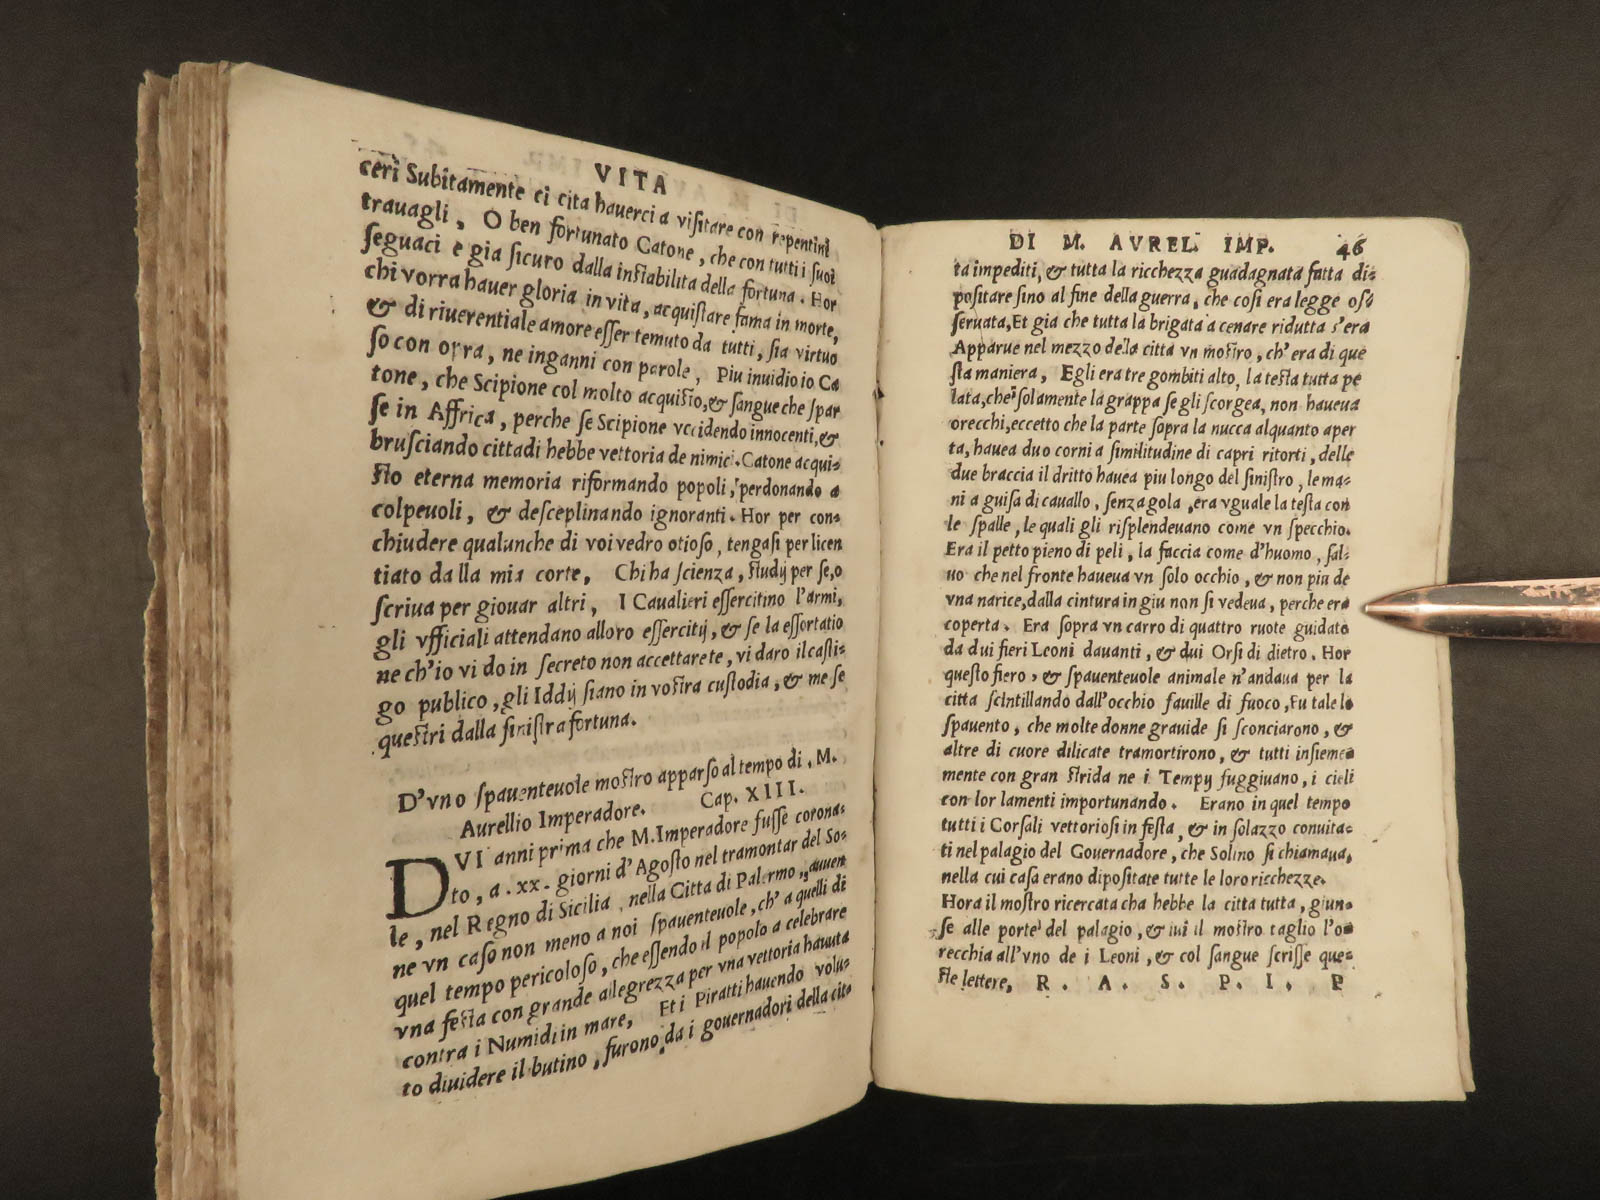 VITA
ceri Subitamente ci cita hauerci a viſitare con repentini
trauagli, O ben fortunato Catone, che con tutti i ſuoi
ſeguaci e gia ſicuro dalla inſtabilita della fortuna. Hor
chi vorra hauer gloria in vita, acquiſtare fama in morte,
& di riuerentiale amore eſſer temuto da tutti, ſia virtuo
ſo con opra, ne inganni con parole, Piu inuidio io Ca
tone, che Scipione col molto acquiſto, & ſangue che ſpar
ſe in Affrica, perche ſe Scipione vccidendo innocenti, &
bruſciando cittadi hebbe vettoria de nimici. Catone acqui-
ſto eterna memoria riformando popoli, perdonando a
colpeuoli, & deſceplinando ignoranti. Hor per con-
chiudere qualunche di voi vedro otioſo, tengaſi per licen
tiato dalla mia corte, Chi ha ſcienza, ſtudij per ſe, o
ſcriua per giouar altri, I Caualieri eſſercitino l'armi,
gli vfficiali attendano alloro eſſercitij, & ſe la eſſortatio
ne ch'io vi do in ſecreto non accettarete, vi daro il caſti-
go publico, gli Iddij ſiano in voſtra cuſtodia, & me ſe
queſtri dalla ſiniſtra fortuna.
D'vno ſpauenteuole moſtro apparſo al tempo di, M.
Aurellio Imperadore. Cap. XIII.
DVI anni prima che M. Imperadore fuſſe corona-
to, a .xx. giorni d'Agoſto nel tramontar del So-
le, nel Regno di Sicilia, nella Citta di Palermo, auuen
ne vn caſo non meno a noi ſpauenteuole, ch'a quelli di
quel tempo pericoloſo, che eſſendo il popolo a celebrare
vna feſta con grande allegrezza per vna vettoria hauuta
contra i Numidi in mare, Et i Piratti hauendo volu-
to diuidere il butino, furono da i gouernadori della cit-
DI M. AVREL. IMP. 46
ta impediti, & tutta la ricchezza guadagnata fatta di-
poſitare ſino al fine della guerra, che coſi era legge oſ-
ſeruata, Et gia che tutta la brigata a cenare ridutta s'era
Apparue nel mezzo della citta vn moſtro, ch'era di que
ſta maniera, Egli era tre gombiti alto, la teſta tutta pe
lata, che ſolamente la grappa ſe gli ſcorgea, non haueua
orecchi, eccetto che la parte ſopra la nucca alquanto aper
ta, hauea duo corni a ſimilitudine di capri ritorti, delle
due braccia il dritto hauea piu longo del ſiniſtro, le ma-
ni a guiſa di cauallo, ſenza gola, era vguale la teſta con
le ſpalle, le quali gli riſplendeuano come vn ſpecchio.
Era il petto pieno di peli, la faccia come d'huomo, ſal-
uo che nel fronte haueua vn ſolo occhio, & non piu de
vna narice, dalla cintura in giu non ſi vedeua, perche era
coperta. Era ſopra vn carro di quattro ruote guidato
da dui fieri Leoni dauanti, & dui Orſi di dietro. Hor
queſto fiero, & ſpauenteuole animale n'andaua per la
citta ſcintillando dall'occhio fauille di fuoco, Fu tale lo
ſpauento, che molte donne grauide ſi ſconciarono, &
altre di cuore dilicate tramortirono, & tutti inſieme-
mente con gran ſtrida ne i Tempy fuggiuano, i cieli
con lor lamenti importunando. Erano in quel tempo
tutti i Corſali vettorioſi in feſta, & in ſolazzo conuita-
ti nel palagio del Gouernadore, che Solino ſi chiamaua,
nella cui caſa erano dipoſitate tutte le loro ricchezze.
Hora il moſtro ricercata cha hebbe la citta tutta, giun-
ſe alle porte del palagio, & iui il moſtro taglio l'o-
recchia all'vno de i Leoni, & col ſangue ſcriſſe que-
ſte lettere, R. A. S. P. I. P